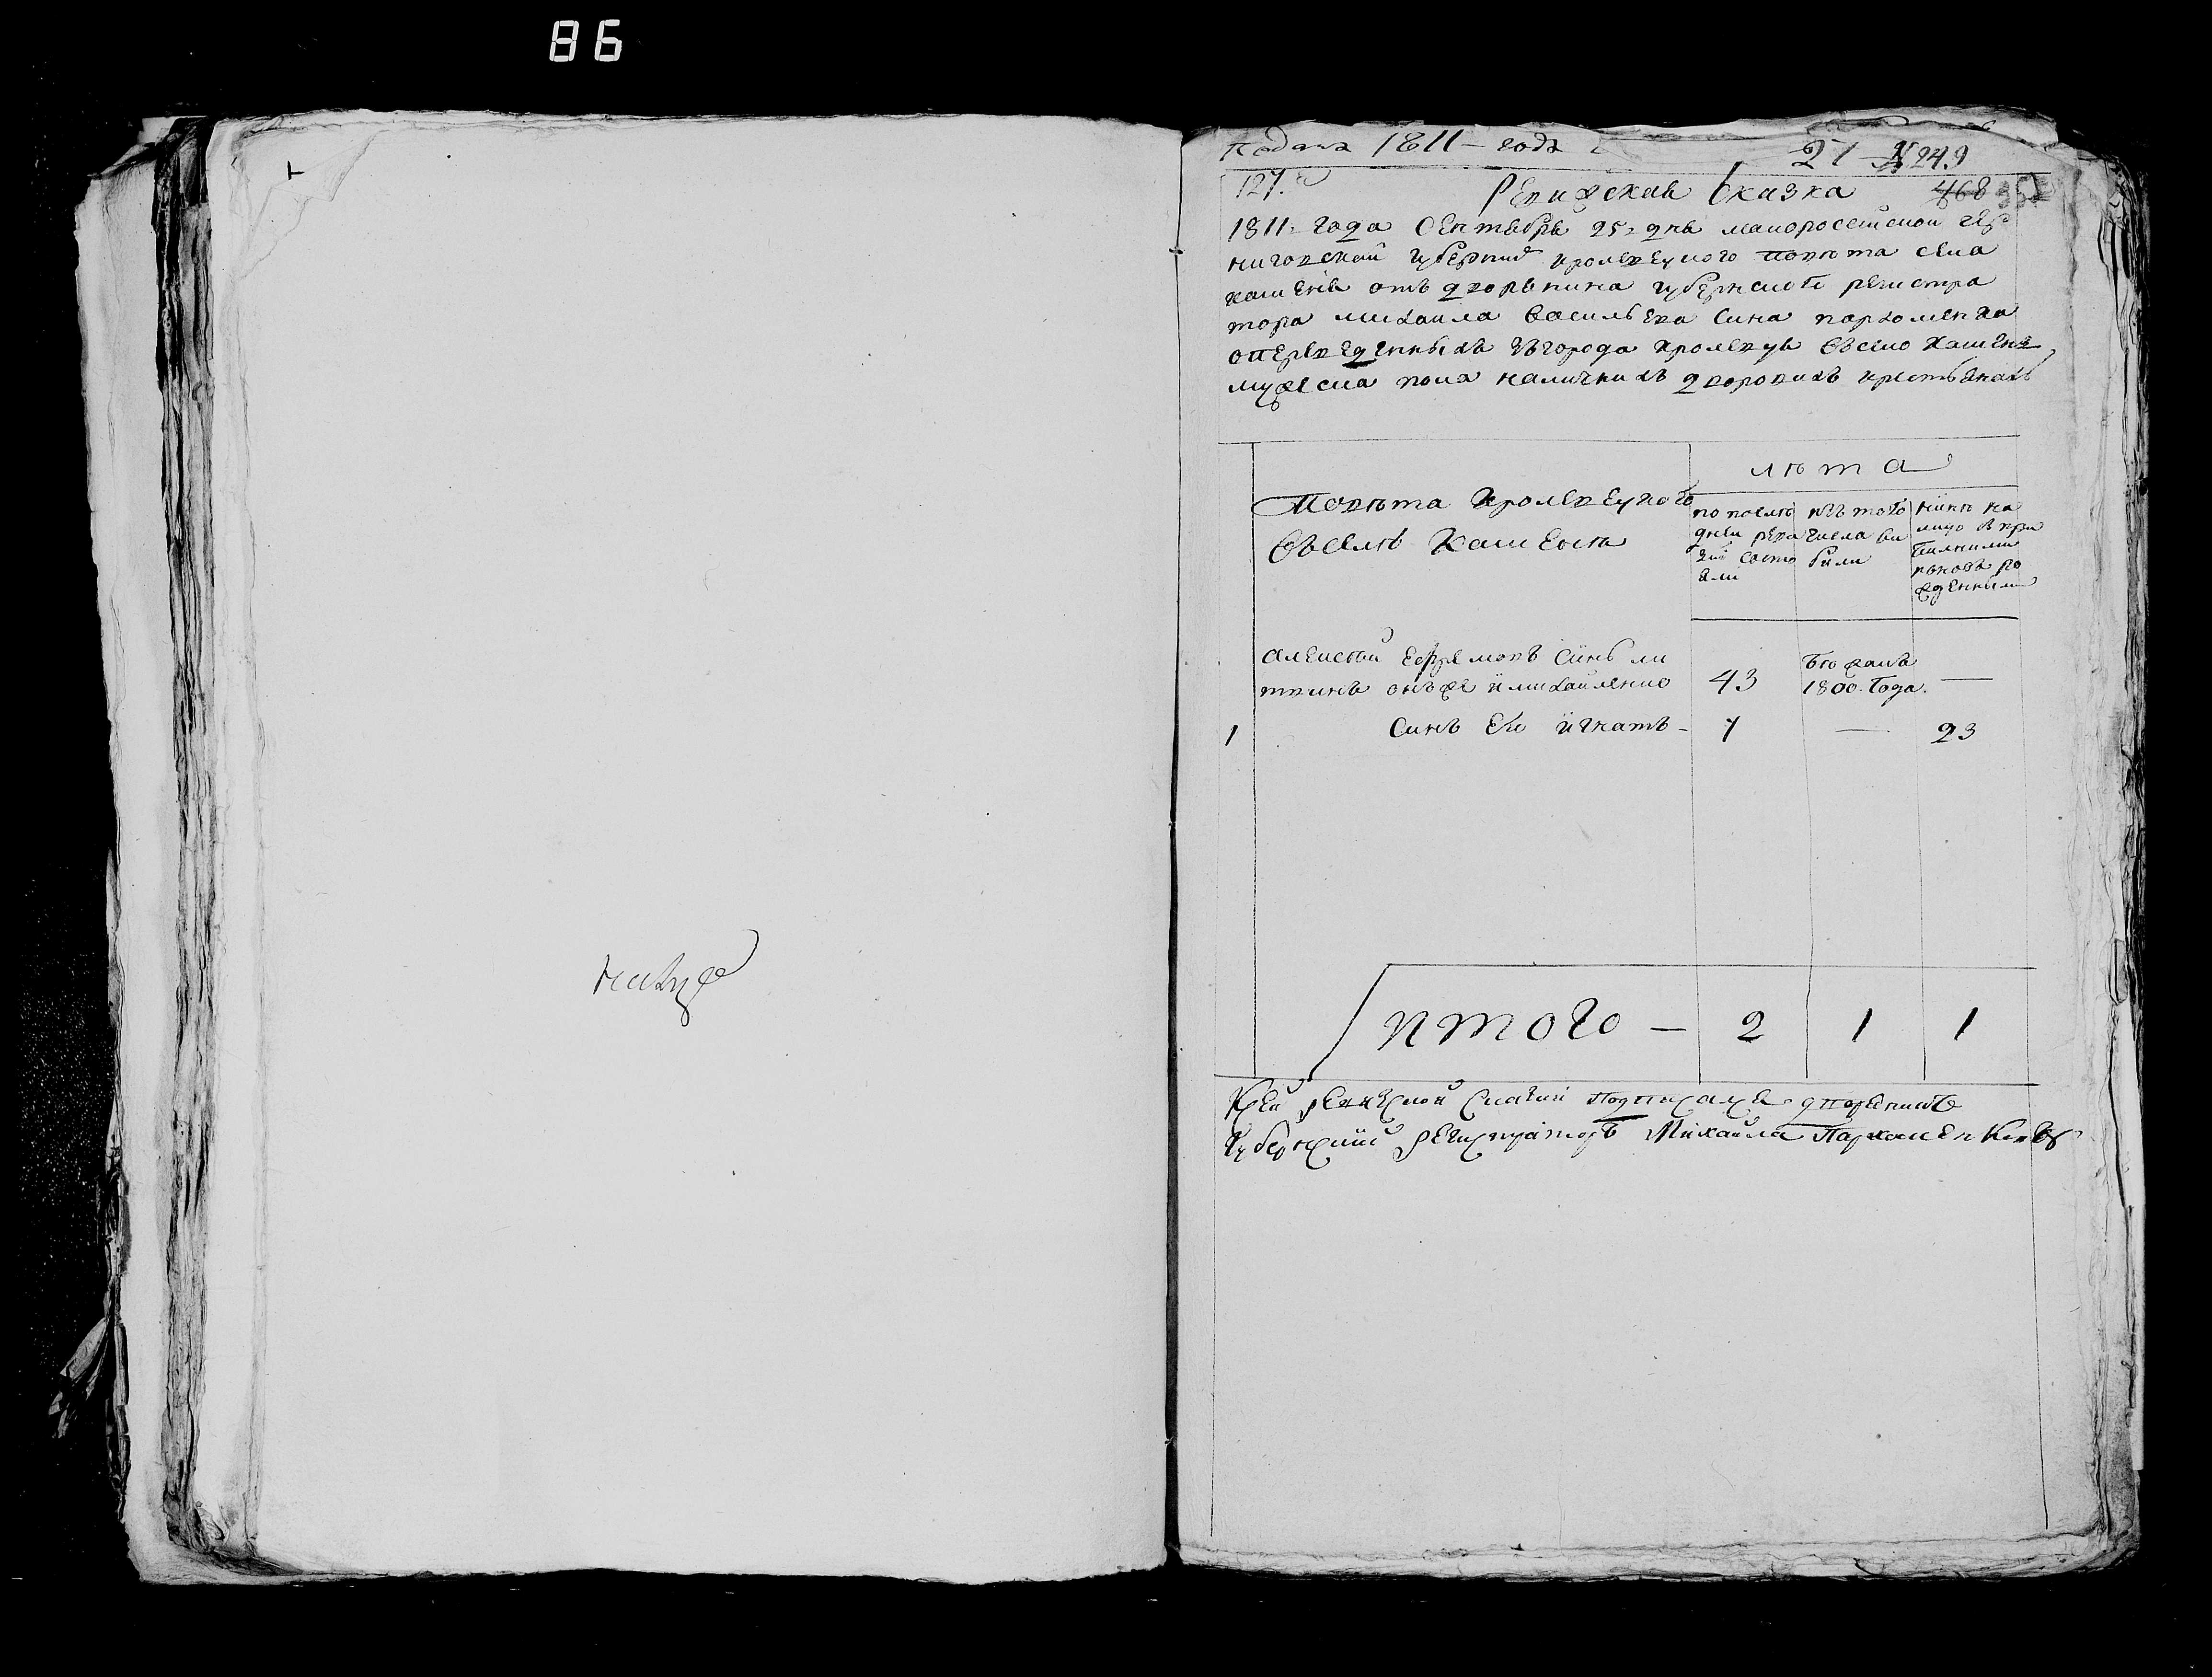 86
подана 1811 – года
27 № 249
127.
468
Ревижская Сказка
1811 года Сентября 25 дня малоросеиской чер
ниговской губернии кролевецкого повѣта села
камѣня отъ дворянина губернского регистра
тора михаила василъева сина пархоменка
опереведенныхъ зъгорода кролевца въсело камень
мужеска пола наличнихъ дворовихъ крестьянахъ
лѣта
Повѣта Кролевецкого
въселѣ Камѣнѣ
по послѣ
дней реви
зии состо
яли
изъ того
числа ви
били
нинѣ на
лицо съ при
билими
и вновъ ро
жденными
алексѣй ефремовъ синъ ли
твинъ онъже и михайленко
43
бѣжалъ
1800 года
—
1
Синъ его игнатъ –
7
—
23
итого – 2 1 1
К сей ревизской сказки подписался дворянинъ
Губернский регистраторъ Михайла Пархоменко